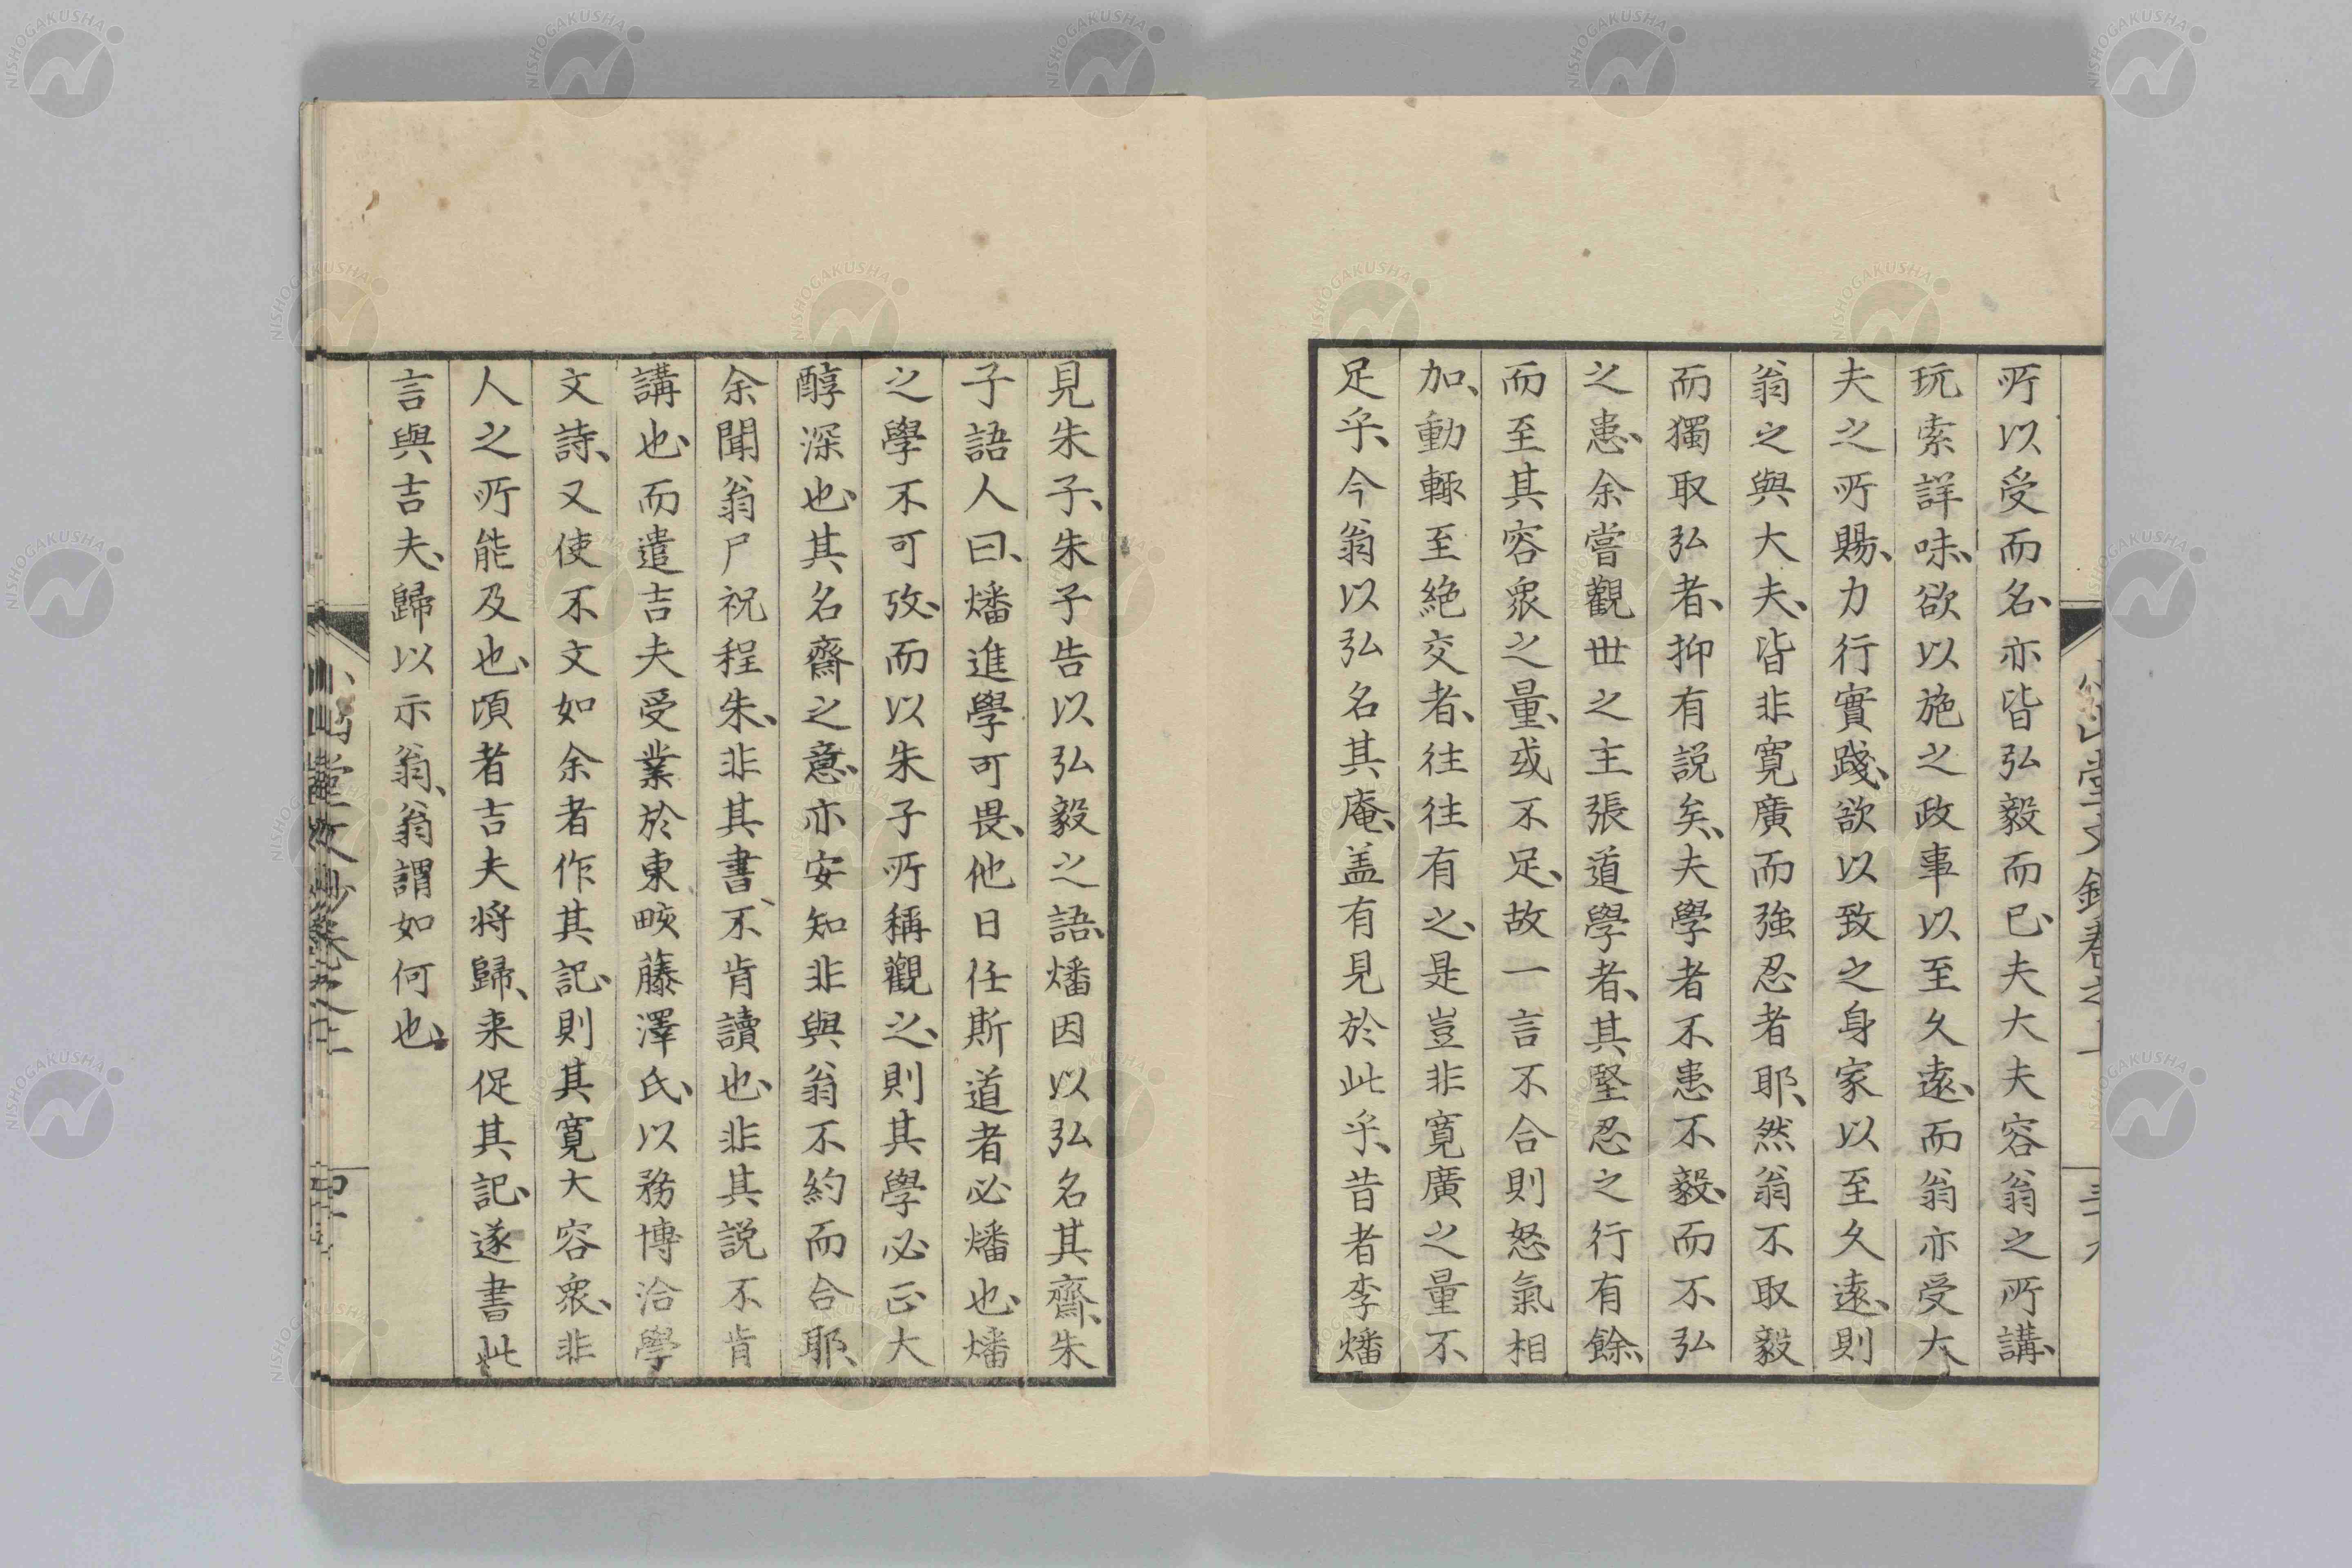 所以受而名、亦皆弘毅而已、夫大夫容翁之所講、
玩索詳味、欲以施之政事以至久遠、而翁亦受大
夫之所賜、力行實踐、欲以致之身家以至久遠、則
翁之與大夫、皆非寬廣而強忍者耶、然翁不取毅
而獨取弘者、抑有説矣、夫學者不患不毅、而不弘
之患、余嘗觀世之主張道學者、其堅忍之行有餘、
而至其容衆之量、或不足、故一言不合則怒氣相
加、動輙至絶交者、往往有之、是豈非寬廣之量不
足乎、今翁以弘名其庵、盖有見於此乎、昔者李燔
見朱子、朱子告以弘毅之語、燔因以弘名其齋、朱
子語人曰、燔進學可畏、他日任斯道者必燔也、燔
之學不可攷、而以朱子所稱觀之、則其學必正大
醇深也、其名齋之意、亦安知非與翁不約而合耶、
余聞翁尸祝程朱、非其書、不肯讀也、非其説不肯
講也、而遣吉夫受業於東畡藤澤氏、以務博洽學
文詩、又使不文如余者作其記、則其寬大容衆、非
人之所能及也、頃者吉夫将歸、来促其記、遂書此
言與吉夫、歸以示翁、翁謂如何也、